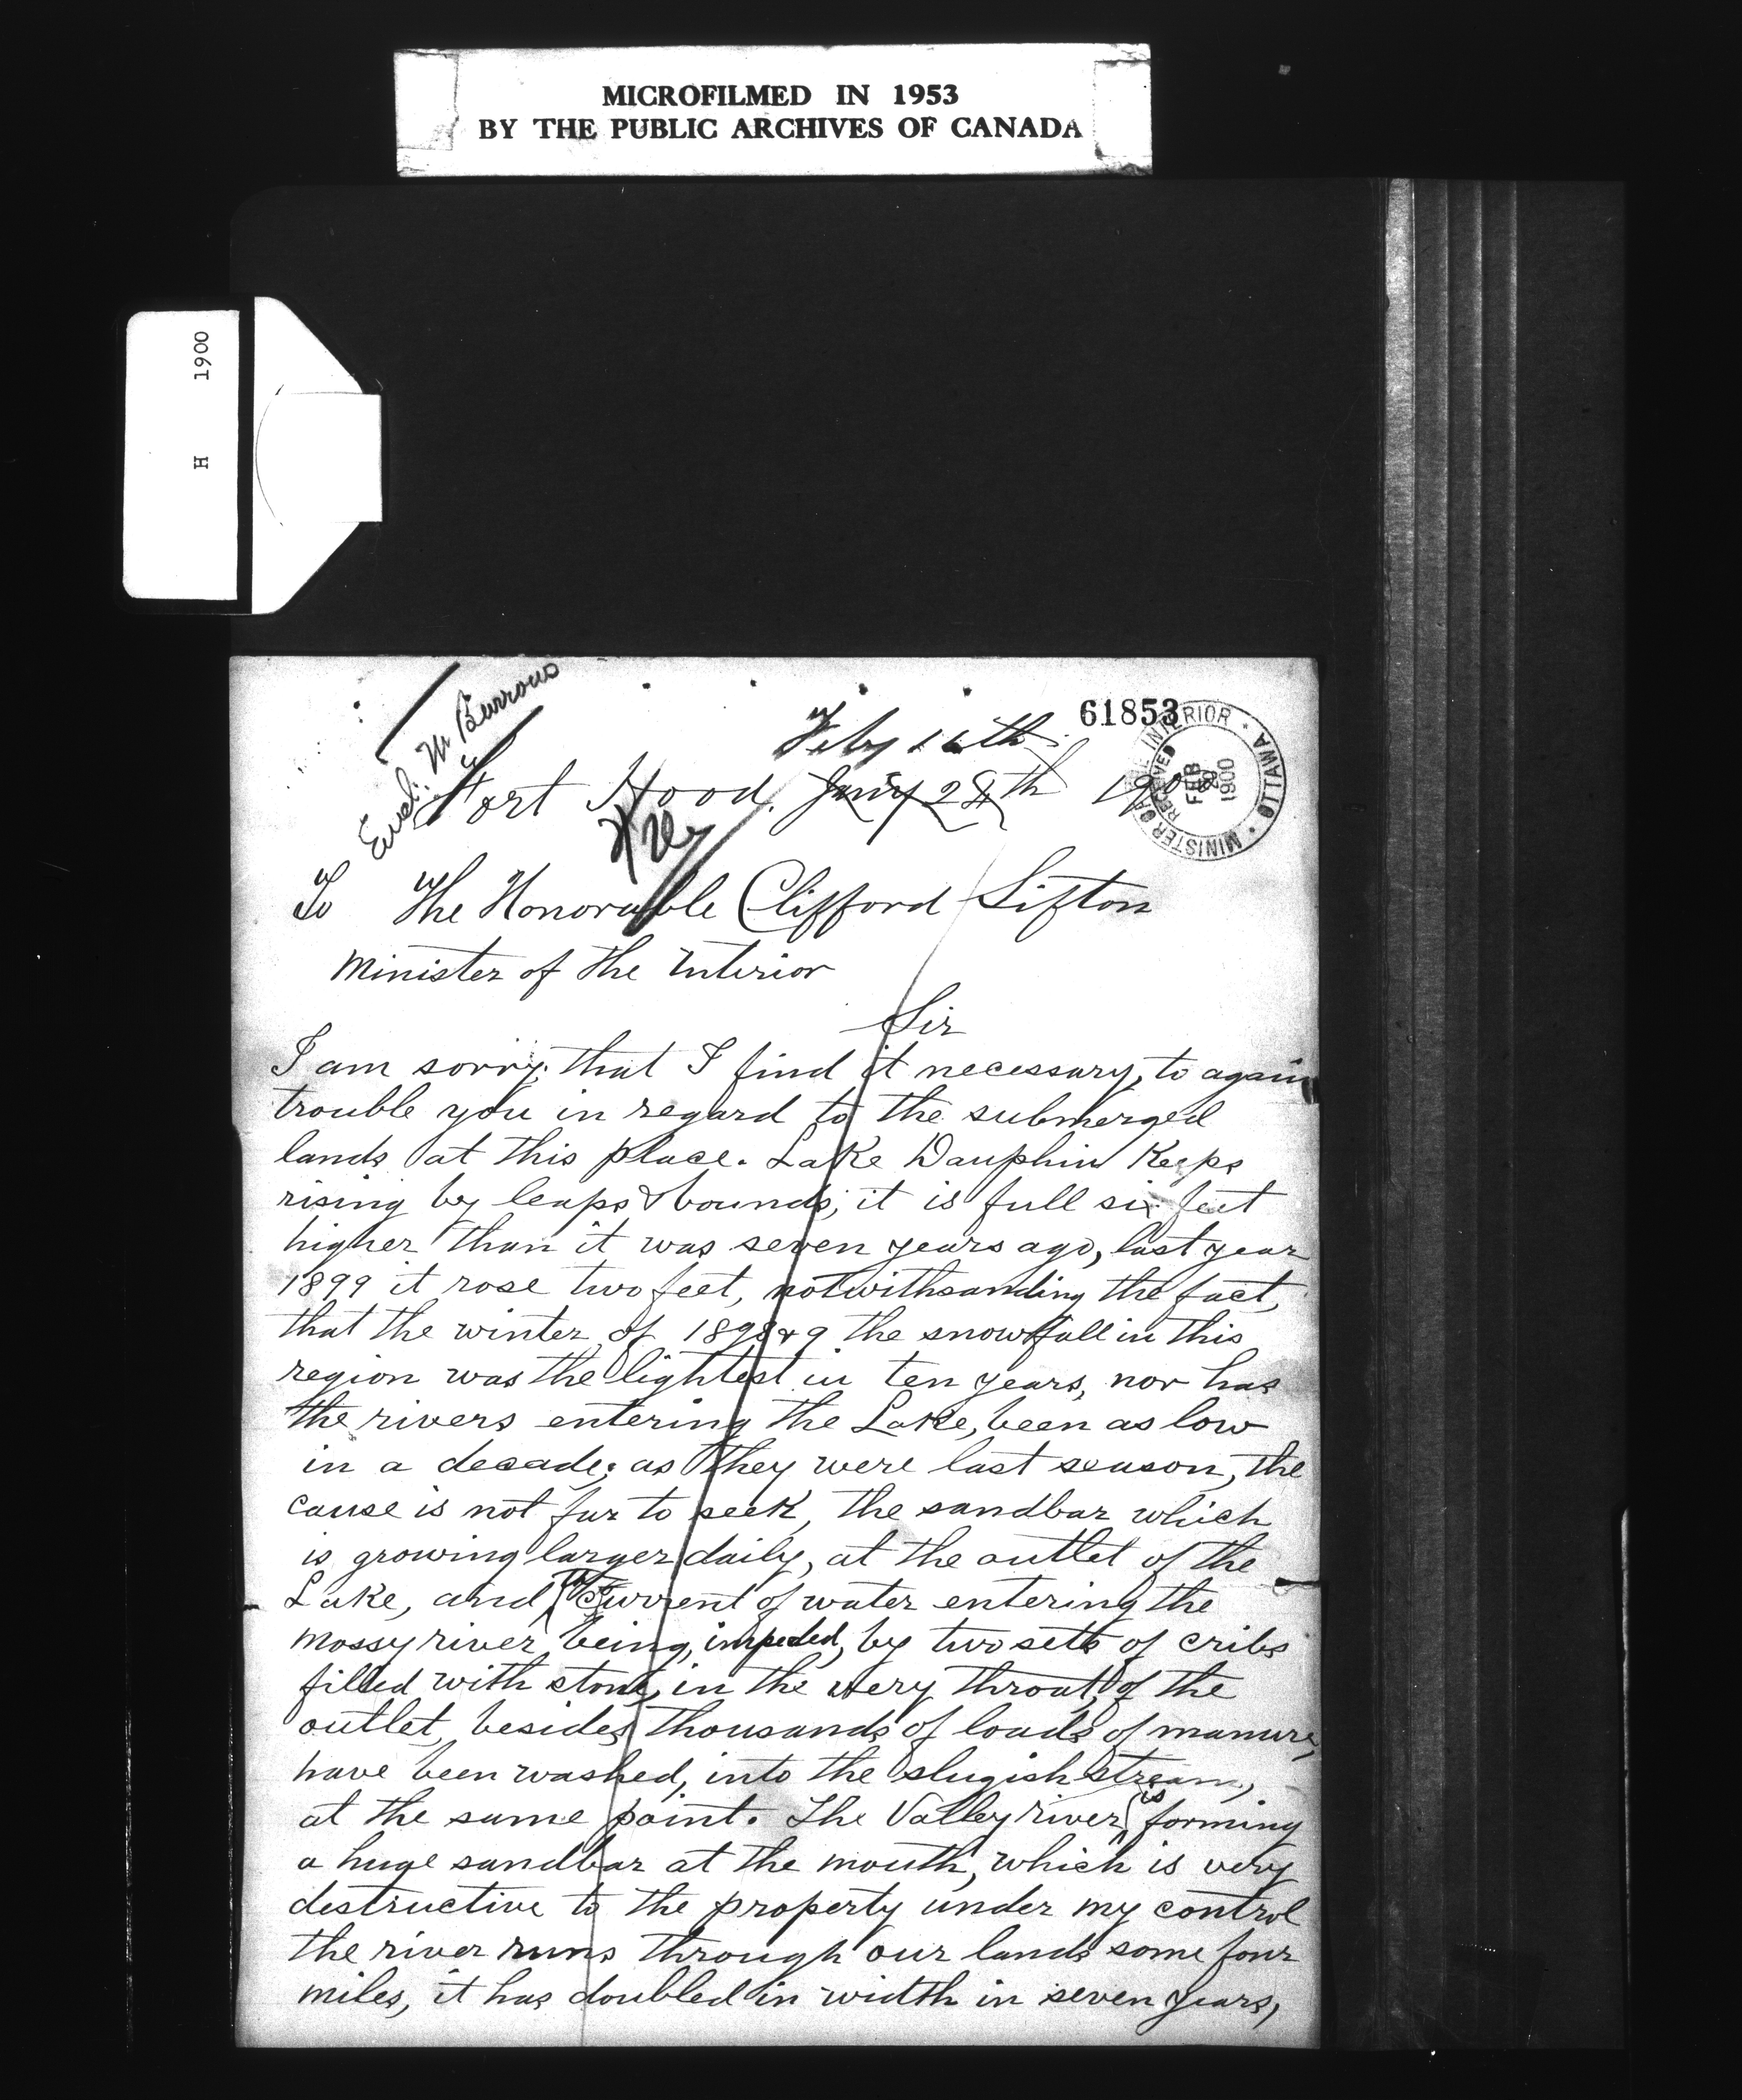 MICROFILMED IN 1953
BY THE PUBLIC ARCHIVES OF CANADA
H 1900
Encl: Mr Burrows
61853
MINISTER OF INTERIOR · OTTAWA ·
RECEIVED
FEB
20
1900
Feby 16th
Fort Hood. Jany 28th 1900
To The Honorable Clifford Sifton
Minister of the Interior
Sir
I am sorry, that I find it necessary, to again
trouble you in regard to the submerged
lands at this place. Lake Dauphin Keeps
rising by leaps & bounds, it is full six feet
higher than it was seven years ago, last year
1899 it rose two feet, notwithsanding the fact,
that the winter of 1898 & 9 the snowfall in this
region was the lightest in ten years, nor has
the rivers entering the Lake, been as low
in a decade, as they were last season, the
cause is not far to seek, the sandbar which
is growing larger daily, at the outlet of the
Lake, and the current of water entering the
mossy river, being, impeded, by two setts of cribs
filled with stone, in the very throat, of the
outlet, besides thousands of loads of manure,
have been washed, into the slugish stream,
at the same point. The Valley river is forming
a huge sandbar at the mouth, which is very
destructive to the property under my control
the river runs through our lands some four
miles, it has doubled in width in seven years,